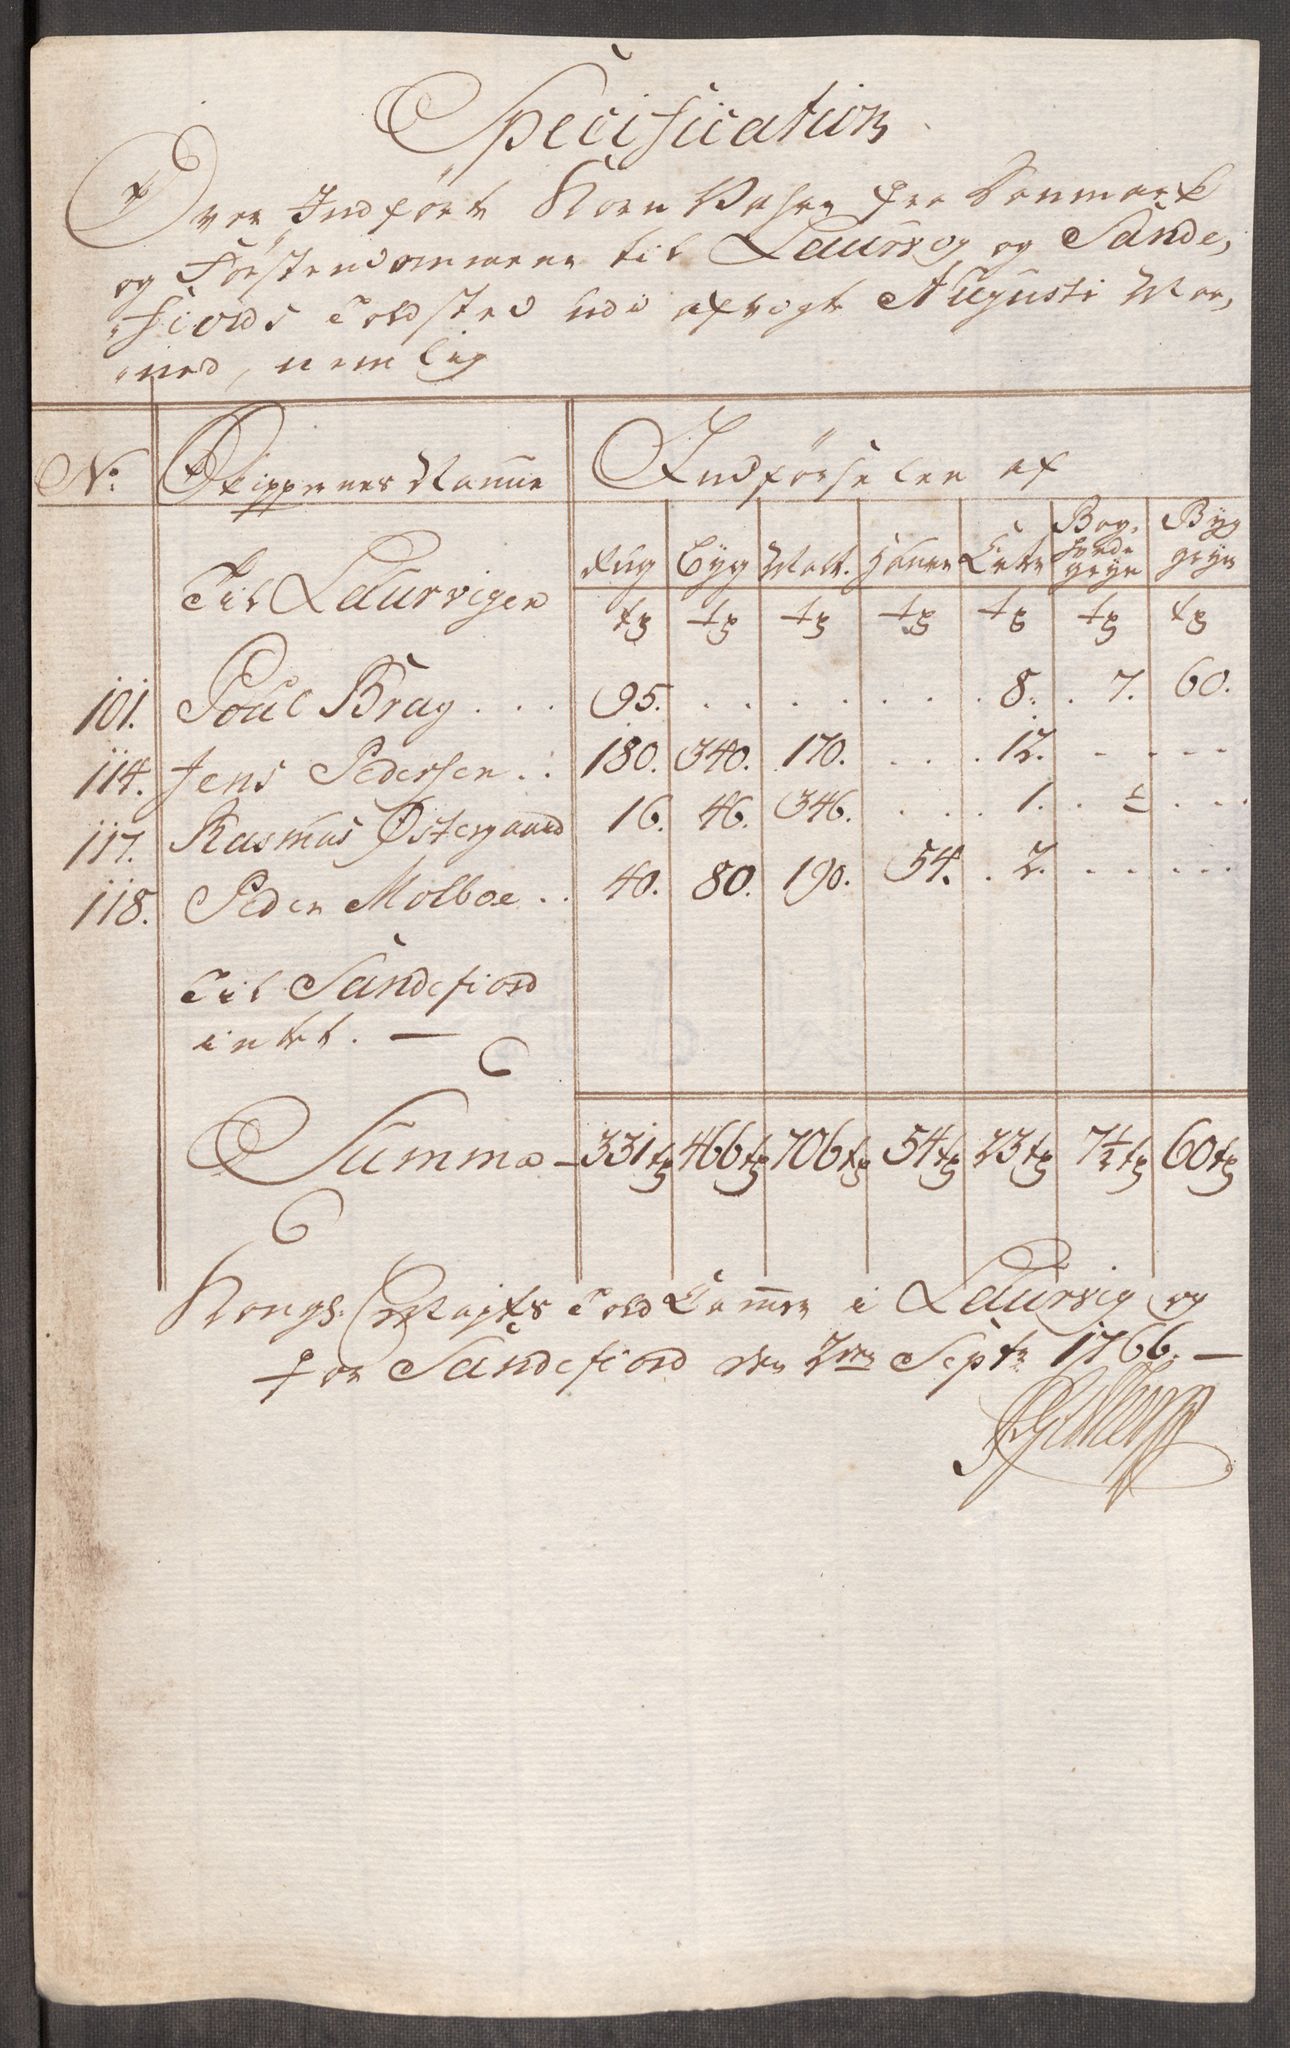 Specification
Over Indført Korn Vahre fra Danmark
og Førstendommene til Laurvig og Sande,
fiords Toldsted udi afvigte Augusti Maa,
ned, nemlig
No: Skippernes Nafne Indførselen af
Til Laurvigen Rug Byg Malt. Haver Erter Bog, hvede gryn Byg gryn
tr tr tr tr tr tr tr
101. Poul Brag . . . 95. . . . . . . . 8. . 7. 60.
114. Jens Pedersen . . 180. 340. 170. . . . 12. . . . .
117. Rasmus Østergaard 16. 46. 346. . . . 1. . ½ . . .
118. Peder Molboe . . 40. 80. 190. 54. . 2. . . . . .
Til Sandefiord
intet. —
Summa — 331 tr 466 tr 706 tr 54 tr 23 tr 7½ tr 60 tr
Kongl. Mayts Told Cammer i Laurvig og
for Sandefiord den 2den Septr 1766. —